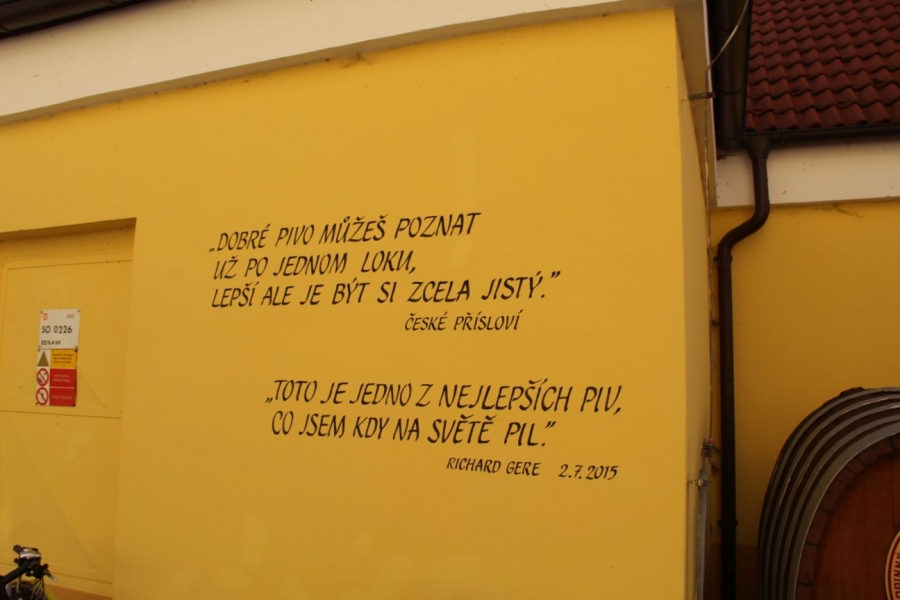 „DOBRÉ PIVO MŮŽEŠ POZNAT
UŽ PO JEDNOM LOKU,
LEPŠÍ ALE JE BÝT SI ZCELA JISTÝ.”
ČESKÉ PŘÍSLOVÍ
„TOTO JE JEDNO Z NEJLEPŠÍCH PIV,
CO JSEM KDY NA SVĚTĚ PIL.”
RICHARD GERE 2.7.2015
SO 0226